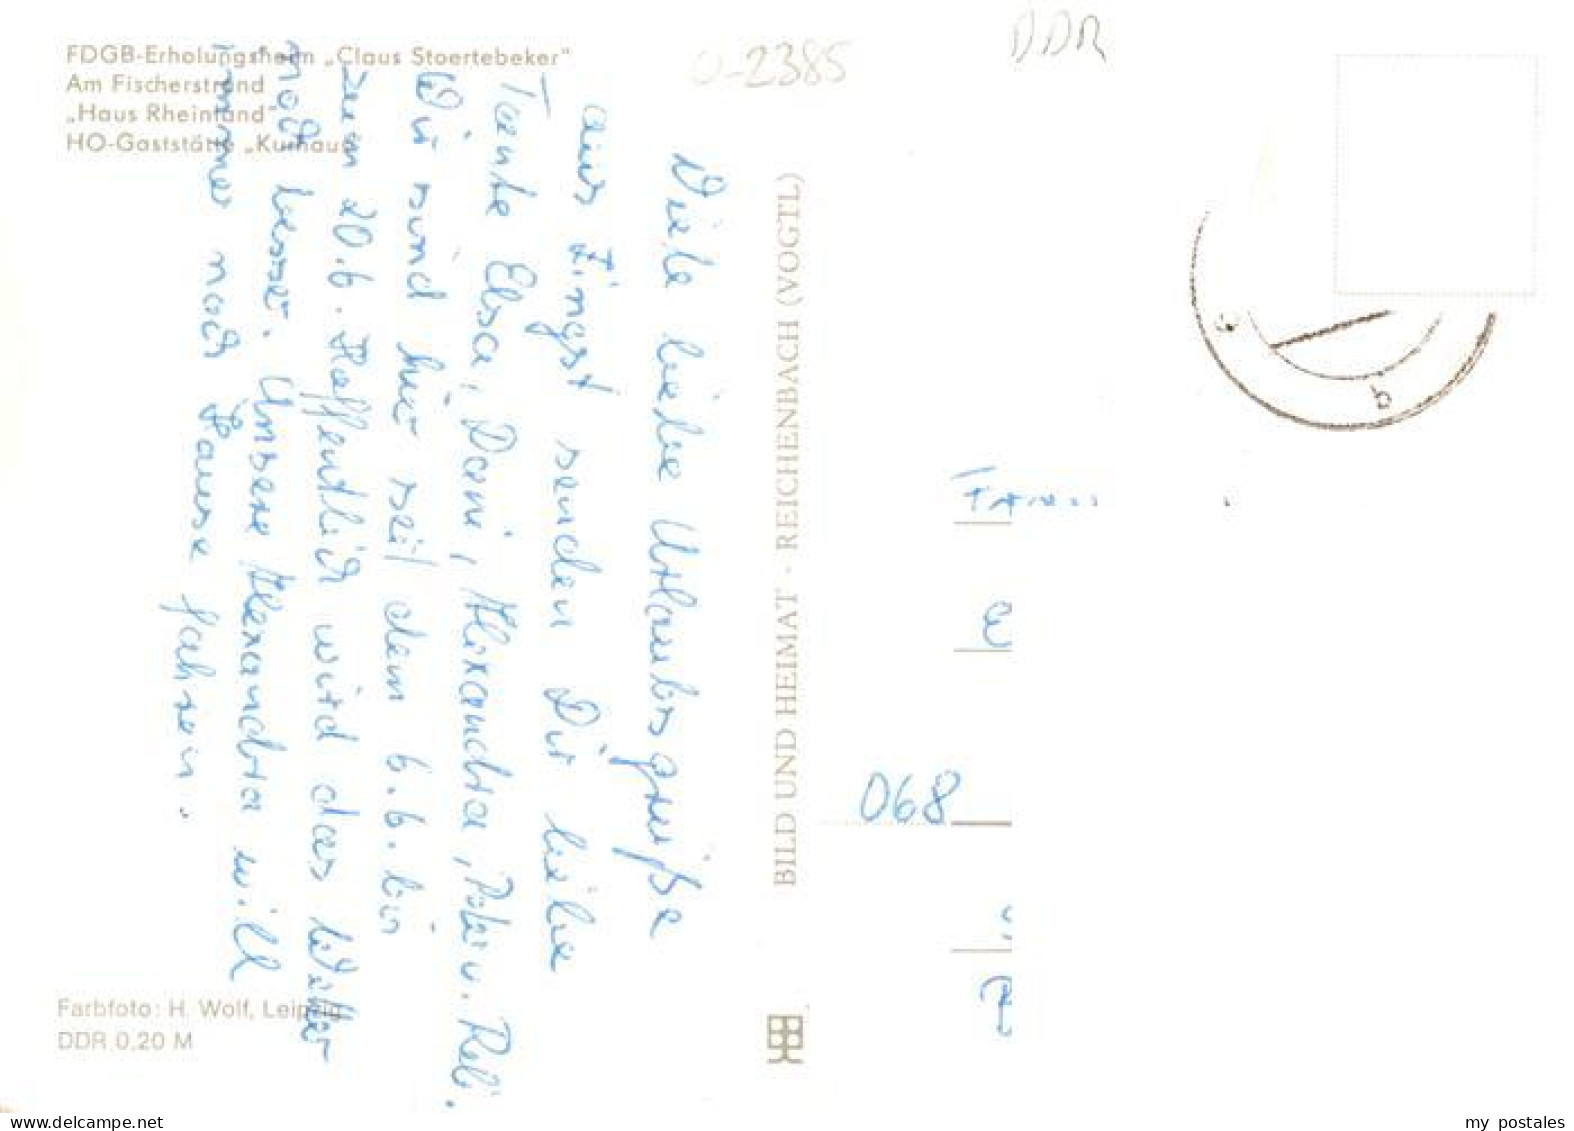 FDGB-Erholungsheim „Claus Stoertebeker"
Am Fischerstrand
„Haus Rheinland"
HO-Gaststätte „Kurhaus"
O-2385
DDR
Viele liebe Urlaubsgrüße
aus Zingst senden Dir liebe
Tante Elsa, Dani, Alexandra, u.
Wir sind hier seit dem 6.6. bis
zum 20.6. Hoffentlich wird das Wetter
noch besser. Unsere Alexandra will
immer nach Hause fahren.
BILD UND HEIMAT · REICHENBACH (VOGTL)
b
068
Farbfoto: H. Wolf, Leipzig
DDR 0,20 M
www.delcampe.net
my postales